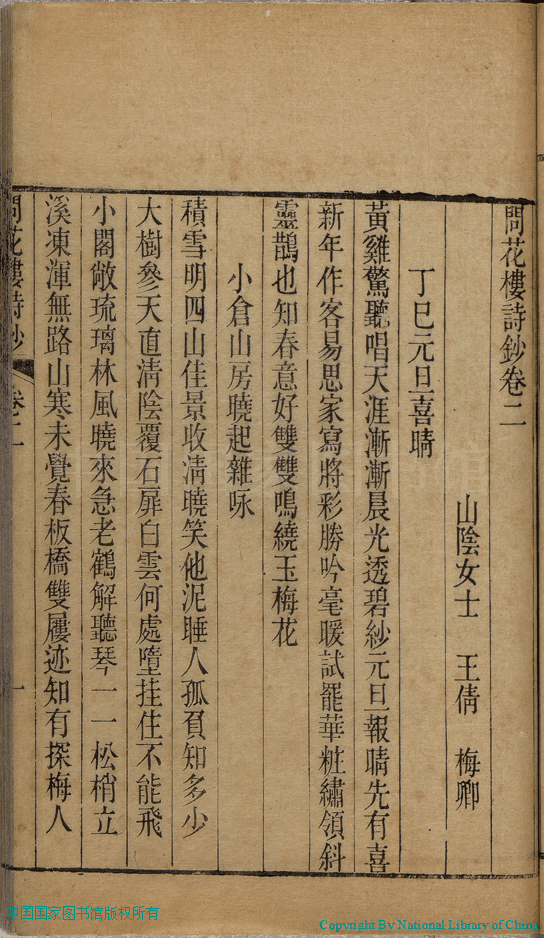 問花樓詩鈔卷二
山陰女士 王倩 梅卿
丁巳元旦喜晴
黃雞驚聽唱天涯漸漸晨光透碧紗元旦報晴先有喜
新年作客易思家寫將彩勝吟毫暖試罷華粧繡領斜
靈鵲也知春意好雙雙鳴繞玉梅花
小倉山房曉起雜咏
積雪明四山佳景收清曉笑他泥睡人孤負知多少
大樹參天直清陰覆石扉白雲何處墮挂住不能飛
小閣敞琉璃林風曉來急老鶴解聽琴一一松梢立
溪凍渾無路山寒未覺春板橋雙屨迹知有探梅人
問花樓詩鈔 卷二 一
中国国家图书馆版权所有
Copyright By National Library of China